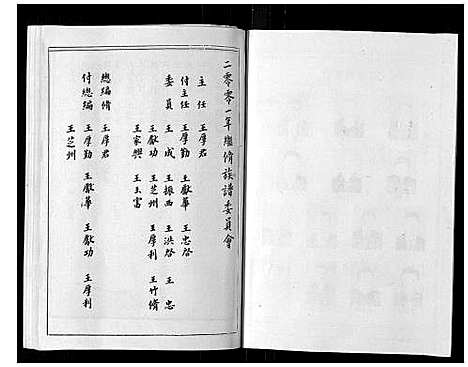 二零零一年繼脩族譜委員會
主任 王厚君
付主任 王厚勤 王獻華 王忠啓
委員 王成 王振西 王洪啓 王忠
王獻功 王芝州 王厚利 王竹脩
王家興 王玉富
總編脩 王厚君
付總編 王厚勤 王獻華 王獻功 王厚利
王芝州